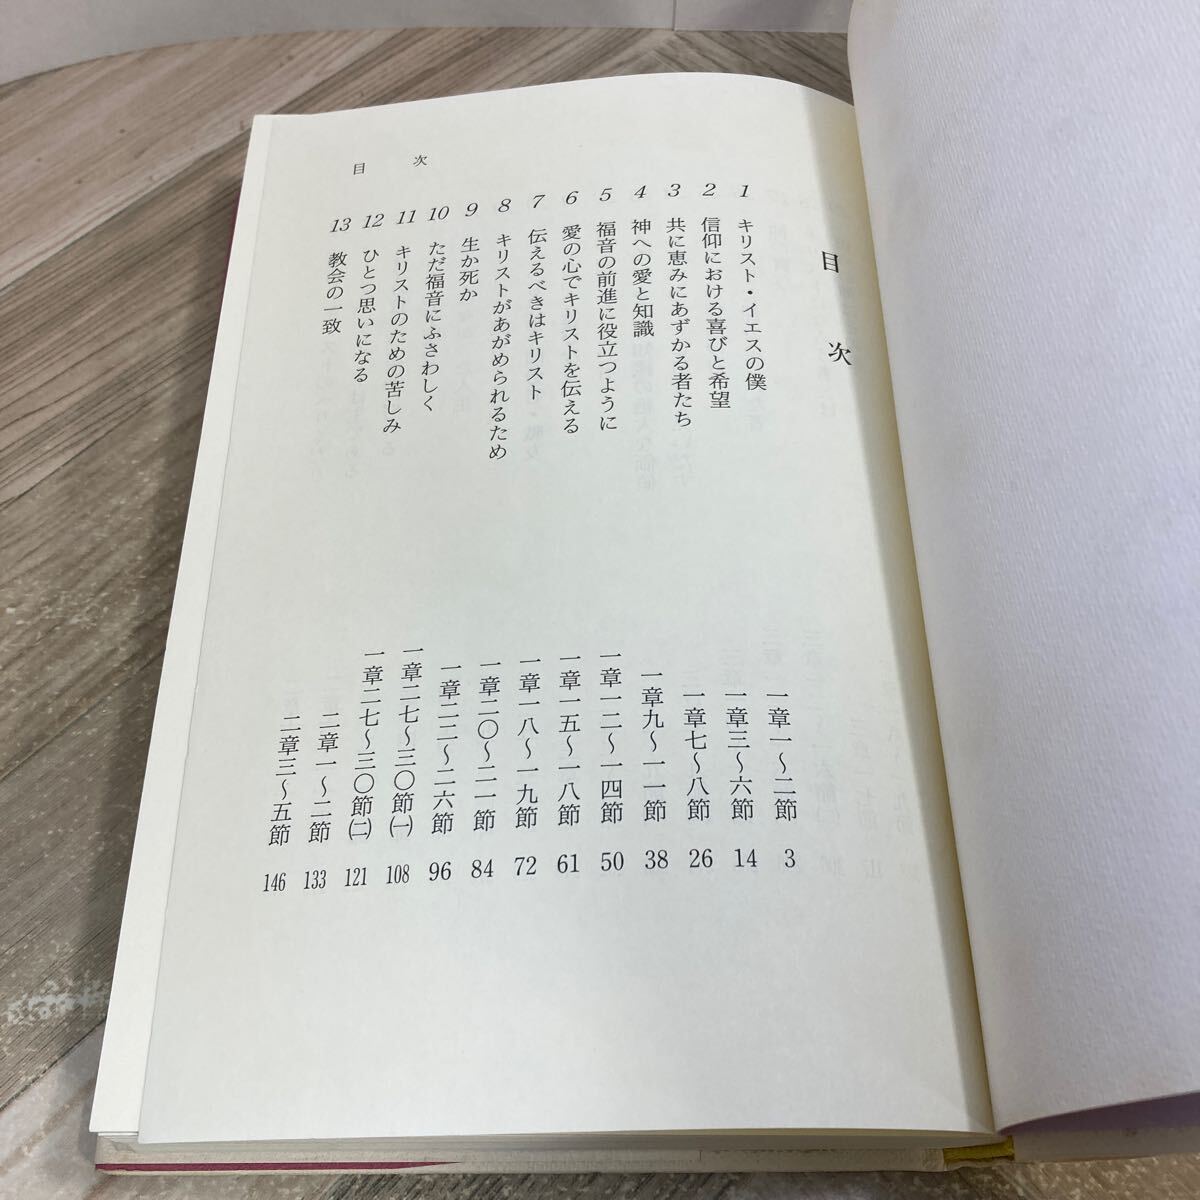 目次
1 キリスト・イエスの僕 一章一〜二節 3
2 信仰における喜びと希望 一章三〜六節 14
3 共に恵みにあずかる者たち 一章七〜八節 26
4 神への愛と知識 一章九〜一一節 38
5 福音の前進に役立つように 一章一二〜一四節 50
6 愛の心でキリストを伝える 一章一五〜一八節 61
7 伝えるべきはキリスト 一章一八〜一九節 72
8 キリストがあがめられるため 一章二〇〜二一節 84
9 生か死か 一章二二〜二六節 96
10 ただ福音にふさわしく 一章二七〜三〇節㈠ 108
11 キリストのための苦しみ 一章二七〜三〇節㈡ 121
12 ひとつ思いになる 二章一〜二節 133
13 教会の一致 二章三〜五節 146
目次